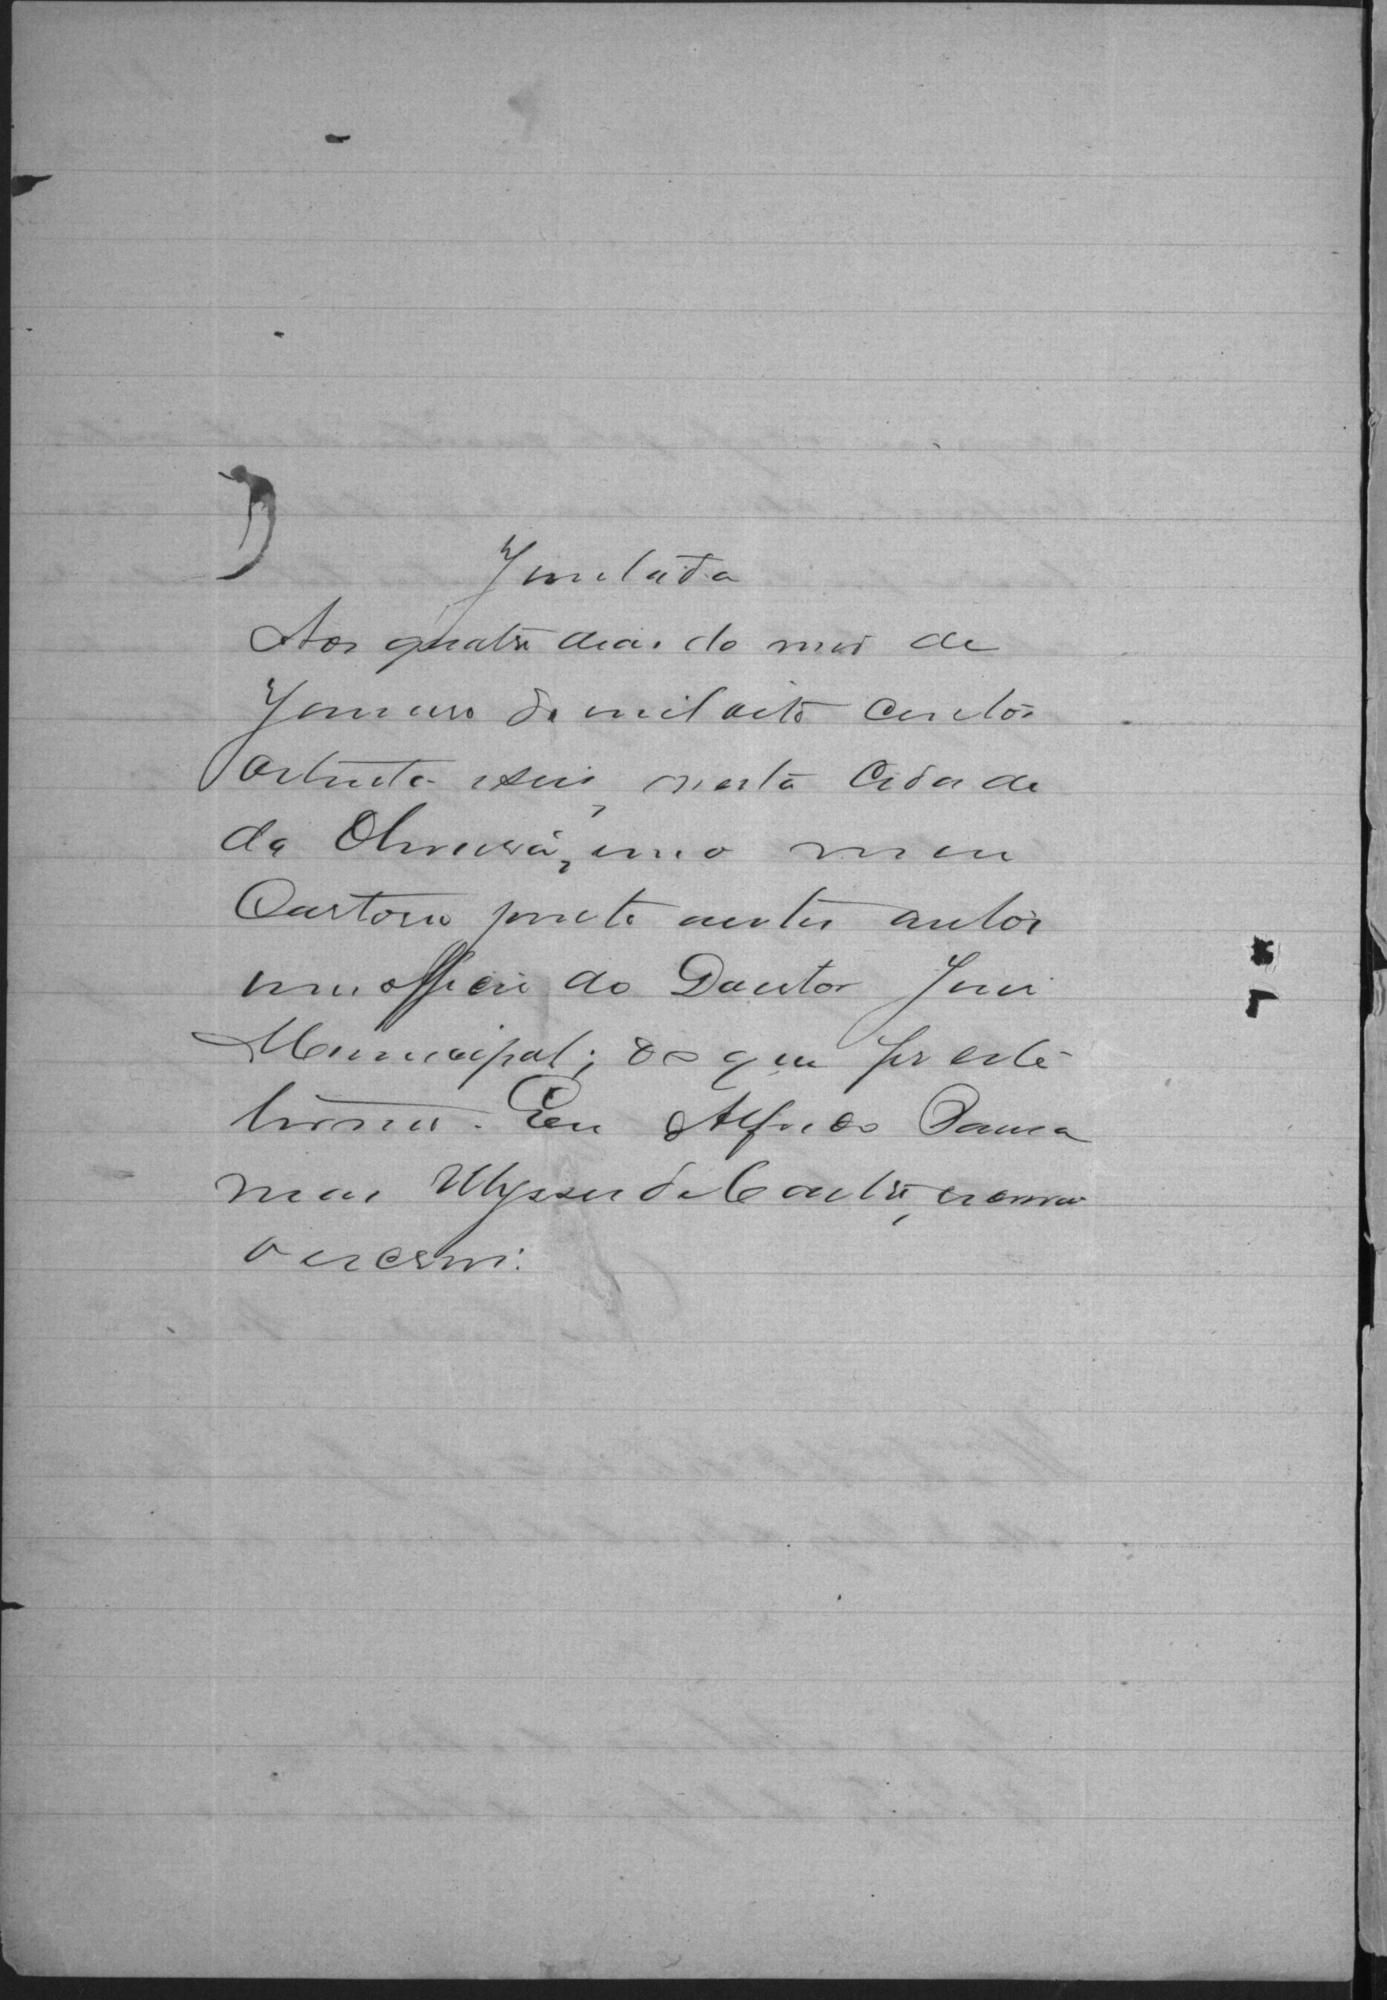 Juntada
Aos quatro dias do mes de
Janeiro de mil oito centos
oitenta e seis, nesta Cidade
da Oliveira, em o meu
Cartorio junto a estes autos
um officio do Doutor Juiz
Municipal; do que fiz este
termo. Eu Alfredo
Ulysses de Castro, escrivão
o escrevi.